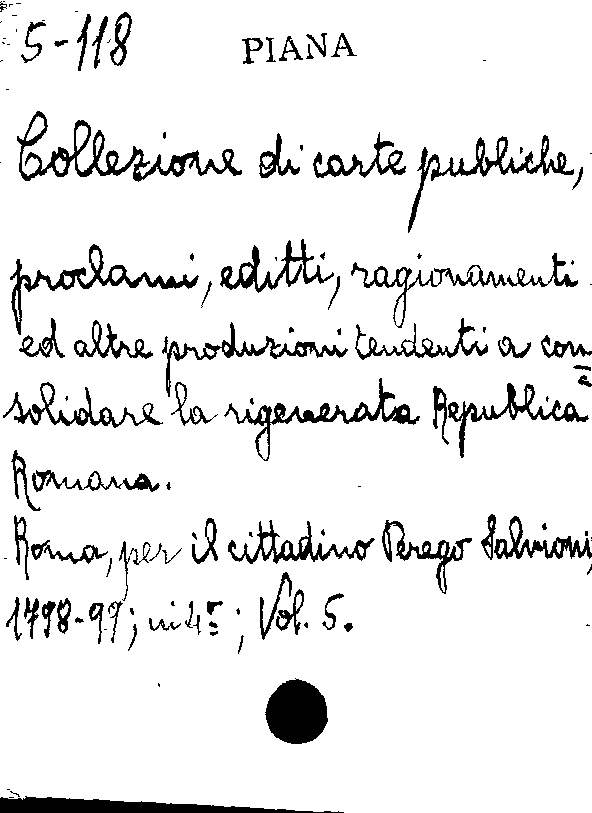 5-118 PIANA
Collezione di carte publiche,
proclami, editti, ragionamenti
ed altre produzioni tendenti a con=
solidare la rigenerata Republica
Romana.
Roma, per il cittadino Perego Salvioni,
1798-99; in 4º; Vol. 5.